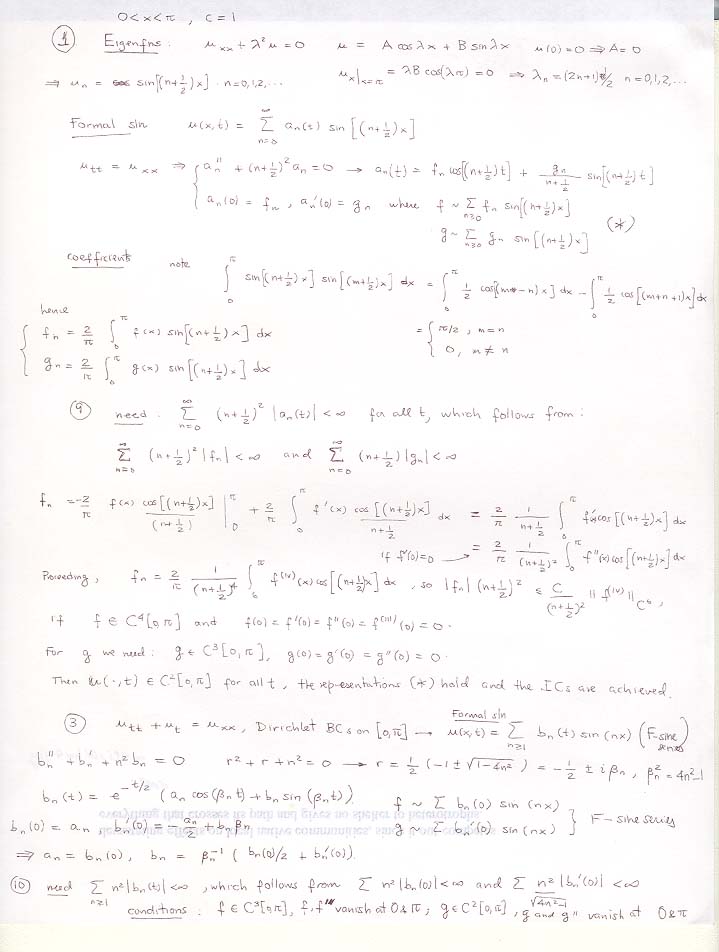 0<x<π , c=1
① Eigenfns: u_xx + λ²u = 0 u = A cos λx + B sin λx u(0)=0 ⇒ A=0
⇒ u_n = sin[(n+½)x] . n=0,1,2,... u_x|_{x=π} = λB cos(λπ) = 0 ⇒ λ_n = (2n+1)/2 n=0,1,2,...
Formal sln u(x,t) = Σ_{n=0}^∞ a_n(t) sin[(n+½)x]
u_tt = u_xx ⇒ { a_n'' + (n+½)² a_n = 0 → a_n(t) = f_n cos[(n+½)t] + g_n/(n+½) sin[(n+½)t]
a_n(0) = f_n , a_n'(0) = g_n where f ~ Σ_{n≥0} f_n sin[(n+½)x]
g ~ Σ_{n≥0} g_n sin[(n+½)x] (*)
coefficients note ∫_0^π sin[(n+½)x] sin[(m+½)x] dx = ∫_0^π ½ cos[(m-n)x] dx - ∫_0^π ½ cos[(m+n+1)x] dx
hence
{ f_n = 2/π ∫_0^π f(x) sin[(n+½)x] dx = { π/2 , m=n
g_n = 2/π ∫_0^π g(x) sin[(n+½)x] dx 0, m≠n
⑨ need: Σ_{n=0}^∞ (n+½)² |a_n(t)| < ∞ for all t, which follows from:
Σ_{n=0}^∞ (n+½)² |f_n| < ∞ and Σ_{n=0}^∞ (n+½) |g_n| < ∞
f_n = -2/π f(x) cos[(n+½)x]/(n+½) |_0^π + 2/π ∫_0^π f'(x) cos[(n+½)x]/(n+½) dx = 2/π 1/(n+½) ∫_0^π f'(x) cos[(n+½)x] dx
if f'(0)=0 → = 2/π 1/(n+½)² ∫_0^π f''(x) cos[(n+½)x] dx
Proceeding, f_n = 2/π 1/(n+½)⁴ ∫_0^π f^(iv)(x) cos[(n+½)x] dx , so |f_n| (n+½)² ≤ C/(n+½)² ||f^(iv)||_{C⁰} ,
if f ∈ C⁴[0,π] and f(0) = f'(0) = f''(0) = f^(iii)(0) = 0.
For g we need: g ∈ C³[0,π], g(0) = g'(0) = g''(0) = 0.
Then u(·,t) ∈ C²[0,π] for all t, the representations (*) hold and the ICs are achieved.
③ u_tt + u_t = u_xx, Dirichlet BCs on [0,π] → Formal sln u(x,t) = Σ_{n≥1} b_n(t) sin(nx) (F-sine
b_n'' + b_n' + n² b_n = 0 r² + r + n² = 0 → r = ½ (-1 ± √(1-4n²)) = -½ ± iβ_n , β_n² = 4n²-1
b_n(t) = e^{-t/2} (a_n cos(β_n t) + b_n sin(β_n t)). f ~ Σ b_n(0) sin(nx)
b_n(0) = a_n b_n'(0) = a_n/2 + b_n β_n g ~ Σ b_n'(0) sin(nx) } F-sine series
⇒ a_n = b_n(0), b_n = β_n^{-1} ( b_n(0)/2 + b_n'(0)).
⑩ need Σ_{n≥1} n² |b_n(t)| < ∞ , which follows from Σ n² |b_n(0)| < ∞ and Σ n²/√(4n²-1) |b_n'(0)| < ∞
conditions: f ∈ C³[0,π], f, f'' vanish at 0 & π ; g ∈ C²[0,π], g and g'' vanish at 0 & π